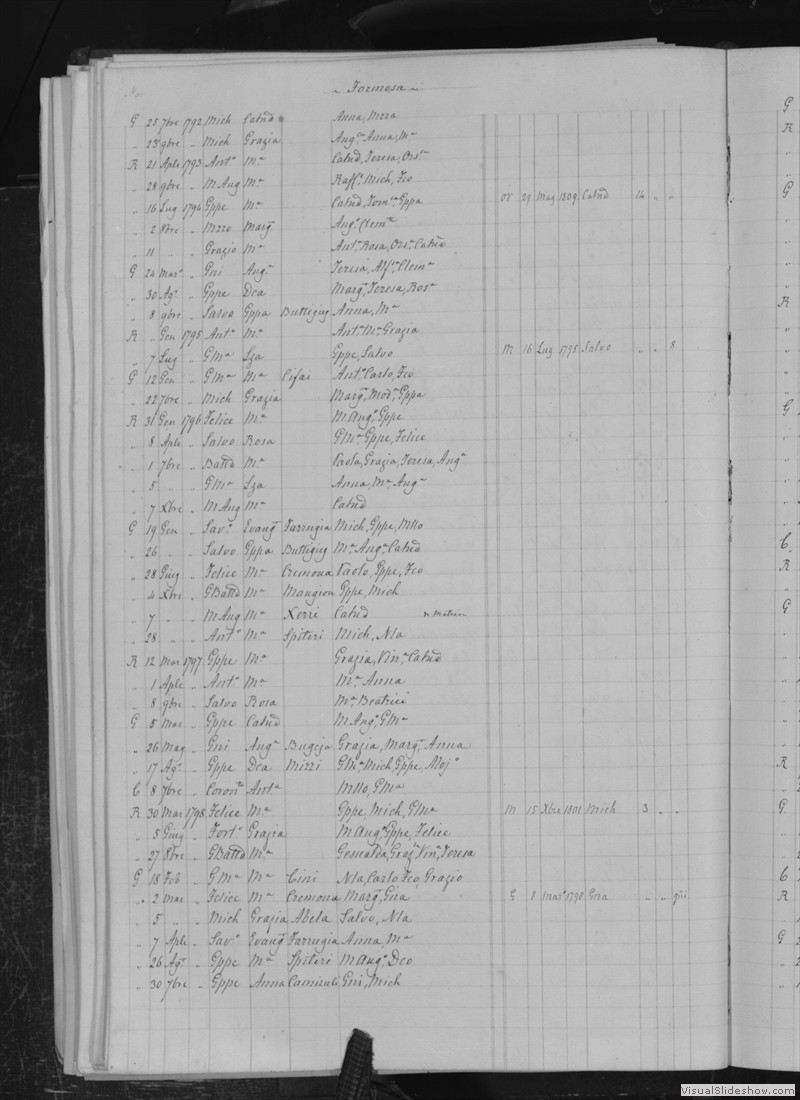 ~ Formosa ~
G 25 7bre 1792 Mich Catnd Anna, Mzza
„ 23 9bre „ Mich Grazia Angᵃ Anna, Mᵃ
R 21 Aple 1793 Antᵒ Mᵃ Catnd, Teresa, Orsᵃ
„ 28 9bre „ MAng Mᵃ Raffᵉ, Mich, Fco
„ 16 Lug 1794 Gppe Mᵃ Catnd, Gppa OR 29 Mag 1809 Catnd 14 „ „
„ 2 8bre „ Mzzo Margᵗ Angᵒ, Clemᵗᵉ
„ 11 „ „ Grazio Mᵃ Antᵃ Rosa, Orsᵃ Catnd
G 24 Marᵒ „ Gni Angᵃ Teresa, Alfᵒ, Clemᵃ
„ 30 Agᵒ „ Gppe Dca Margᵗ, Teresa, Rosᵃ
„ 8 9bre „ Salvo Gppa Buttigieg Anna, Mᵃ
R „ Gen 1795 Antᵒ Mᵃ Antᵃ Mᵃ Grazia
„ 7 Lug „ GMᵃ Lza Gppe, Salvo M 16 Lug 1795 Salvo „ „ 8
G 12 Gen „ GMᵃ Mᵃ Cifai Antᵒ, Carlo, Fco
„ 22 7bre „ Mich Grazia Margᵗ, Modᵃ, Gppa
R 31 Gen 1796 Felice Mᵃ MAngᵒ, Gppe
„ 8 Aple „ Salvo Rosa GMᵃ, Gppe, Felice
„ 1 7bre „ Battd Mᵃ Paola, Grazia, Teresa, Angᵃ
„ 5 „ „ GMᵃ Lza Anna, Mᵃ, Angᵃ
„ 7 Xbre „ MAng Mᵃ Catnd
G 19 Gen „ Savᵒ Evangᵗ Farrugia Mich, Gppe, Mllo
„ 26 „ „ Salvo Gppa Buttigieg Mᵃ Angᵃ Catnd
„ 28 Giug „ Felice Mᵃ Cremona Paolo, Gppe, Fco
„ 4 Xbre „ GBattd Mᵃ Mangion Gppe, Mich
„ 7 „ „ MAng Mᵃ Xerri Catnd
„ 28 „ „ Antᵒ Mᵃ Spiteri Mich, Nla
R 12 Mar 1797 Gppe Mᵃ Grazia, Vinᵃ Catnd
„ 1 Aple „ Antᵒ Mᵃ Mᵃ Anna
„ 8 9bre „ Salvo Rosa Mᵃ Beatrice
G 5 Mar „ Gppe Catnd MAngᵒ, GMᵃ
„ 26 Mag „ Gni Angᵃ Bugeja Grazia, Margᵗ, Anna
„ 17 Agᵒ „ Gppe Dca Mizzi GMᵃ Mich, Gppe, Alojᵒ
C 8 7bre „ Coronᵗᵒ Antᵃ Mllo, GMᵃ
R 30 Mar 1798 Felice Mᵃ Gppe, Mich, GMᵃ M 15 Xbre 1801 Mich 3 „ „
„ 5 Giug „ Fortᵒ Grazia MAngᵒ, Gppe, Felice
„ 27 8bre „ GBattd Mᵃ Gesualda, Grazᵃ, Vinᵃ, Teresa
G 18 Feb „ GMᵃ Mᵃ Cini Nla, Carlo Fco, Grazio
„ 2 Mar „ Felice Mᵃ Cremona Margᵗ, Gna G 8 Marᵒ 1798 Gna „ „ gni
„ 5 „ „ Mich Grazia Abela Salvo, Nla
„ 7 Aple „ Savᵒ Evangᵗ Farrugia Anna, Mᵃ
„ 26 Agᵒ „ Gppe Mᵃ Spiteri MAngᵒ, Dco
„ 30 7bre „ Gppe Anna Camizuli Gni, Mich
VisualSlideshow.com